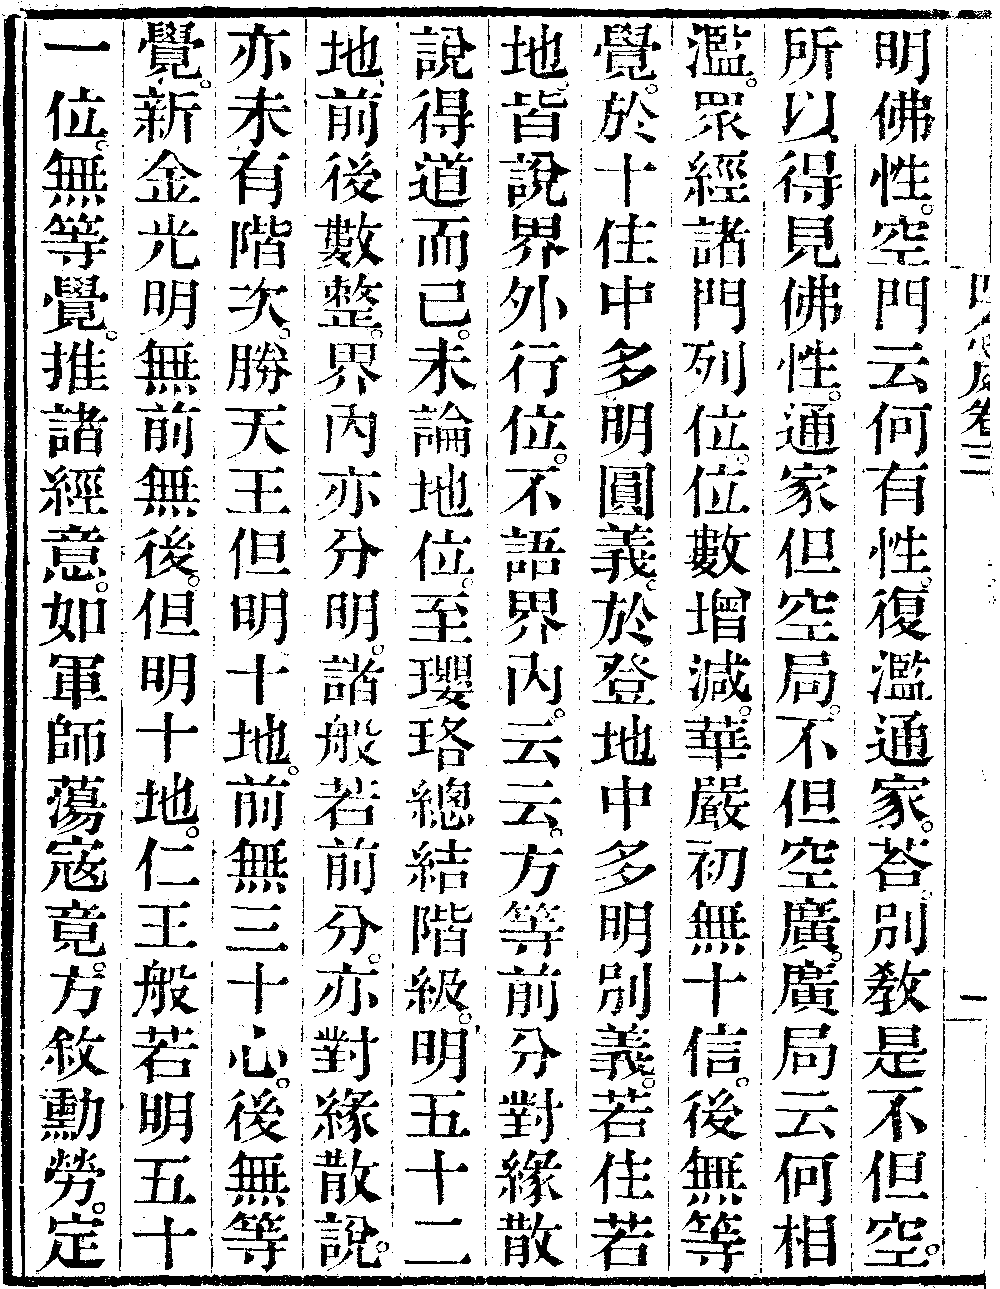 明佛性。空門云何有性。復濫通家。荅別教是不但空。
所以得見佛性。通家但空局。不但空廣。廣局云何相
濫。眾經諸門列位。位數增減。華嚴初無十信。後無等
覺。於十住中多明圓義。於登地中多明別義。若住若
地、皆說界外行位。不語界內。云云。方等前分對緣散
說得道而已。未論地位。至瓔珞總結階級。明五十二
地、前後數整。界內亦分明。諧般若前分。亦對緣散說。
亦未有階次。勝天王但明十地。前無三十心。後無等
覺。新金光明無前無後。但明十地。仁王般若明五十
一位。無等覺。推諸經意。如軍師蕩寇竟。方敘勳勞。定